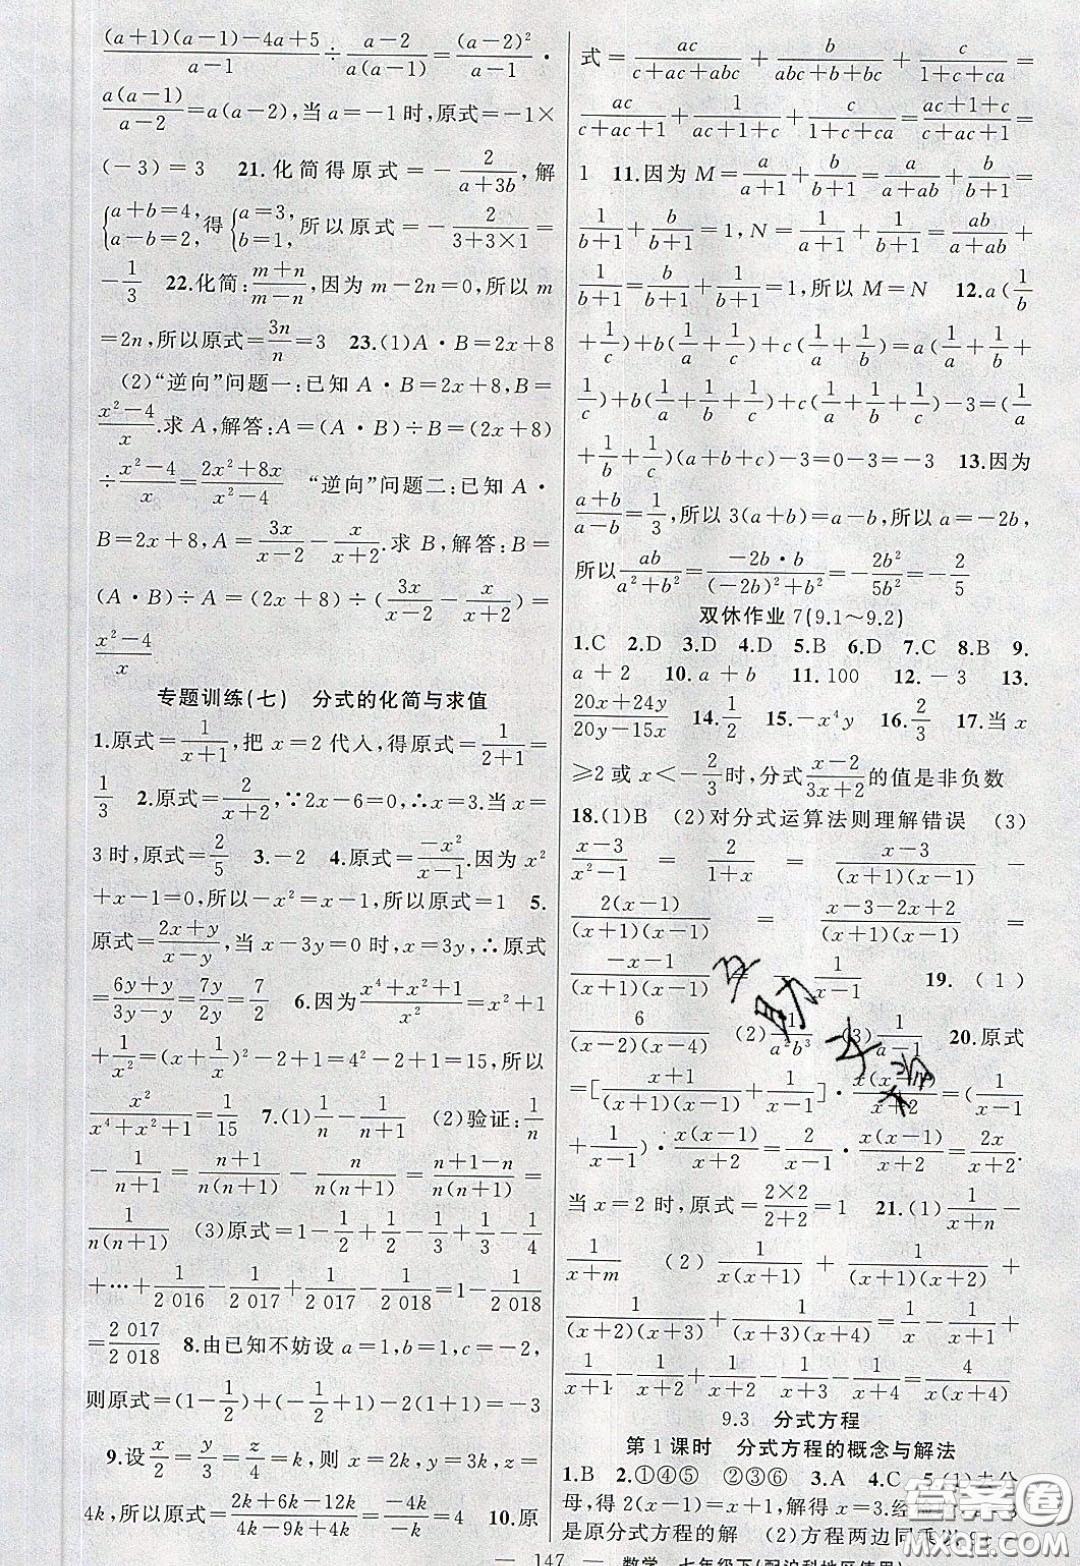 (a+1)(a-1)-4a+5/a-1 ÷ a-2/a(a-1) = (a-2)²/a-1 ·
a(a-1)/a-2 = a(a-2),当 a=-1 时,原式=-1×
(-3)=3 21.化简得原式=-2/a+3b,解
{a+b=4, a-b=2, 得{a=3, b=1, 所以原式=-2/3+3×1=
-1/3 22.化简:m+n/m-n,因为 m-2n=0,所以 m
=2n,所以原式=3n/n=3 23.(1)A·B=2x+8
(2)“逆向”问题一:已知 A·B=2x+8,B=
x²-4/x.求 A,解答:A=(A·B)÷B=(2x+8)
÷x²-4/x=2x²+8x/x²-4 “逆向”问题二:已知 A·
B=2x+8,A=3x/x-2-x/x+2.求 B,解答:B=
(A·B)÷A=(2x+8)÷(3x/x-2-x/x+2)=
x²-4/x
专题训练(七) 分式的化简与求值
1.原式=1/x+1,把 x=2 代入,得原式=1/2+1=
1/3 2.原式=2/x+2,∵2x-6=0,∴x=3.当 x=
3 时,原式=2/5 3.-2 4.原式=-x²/x-1.因为 x²
+x-1=0,所以-x²=x-1,所以原式=1 5.
原式=2x+y/x-y,当 x-3y=0 时,x=3y,∴原式
=6y+y/3y-y=7y/2y=7/2 6.因为x⁴+x²+1/x²=x²+1
+1/x²=(x+1/x)²-2+1=4²-2+1=15,所以
x²/x⁴+x²+1=1/15 7.(1)1/n-1/n+1 (2)验证:1/n
-1/n+1=n+1/n(n+1)-n/n(n+1)=n+1-n/n(n+1)=
1/n(n+1) (3)原式=1-1/2+1/2-1/3+1/3-1/4
+…+1/2 016-1/2 017+1/2 017-1/2 018=1-1/2 018
=2 017/2 018 8.由已知不妨设 a=1,b=1,c=-2,
则原式=(1-1/2)+(-1/2+1)-2(1+1)=-3
9.设x/2=y/3=z/4=k,则 x=2k,y=3k,z=
4k,所以原式=2k+6k-12k/4k-9k+4k=-4k/-k=4 10.原
式=ac/c+ac+abc+b/abc+b+bc+c/1+c+ca=
ac/c+ac+1+1/ac+1+c+c/1+c+ca=ac+1+c/c+ac+1=
1 11.因为 M=a/a+1+b/b+1=a/a+ab+b/b+1=
1/b+1+b/b+1=1,N=1/a+1+1/b+1=ab/a+ab+
1/b+1=b/b+1+1/b+1=1,所以 M=N 12.a(1/b
+1/c)+b(1/a+1/c)+c(1/a+1/b)=a(1/a+1/b+
1/c)+b(1/a+1/b+1/c)+c(1/a+1/b+1/c)-3=(1/a
+1/b+1/c)(a+b+c)-3=0-3=-3 13.因为
a+b/a-b=1/3,所以 3(a+b)=a-b,所以 a=-2b,
所以ab/a²+b²=-2b·b/(-2b)²+b²=-2b²/5b²=-2/5
双休作业 7(9.1~9.2)
1.C 2.D 3.D 4.D 5.B 6.D 7.C 8.B 9.
a+2 10.a+b 11.100 12.-3 13.
20x+24y/20y-15x 14.1/2 15.-x⁴y 16.2/3 17.当 x
≥2 或 x<-2/3时,分式x-2/3x+2的值是非负数
18.(1)B (2)对分式运算法则理解错误 (3)
x-3/x²-1 - 2/1+x = x-3/(x+1)(x-1) -
2(x-1)/(x+1)(x-1) = x-3-2x+2/(x+1)(x-1) =
-x-1/(x+1)(x-1) = -1/x-1 19.(1)
6/(x-2)(x-4) (2)1/a²b³ (3)1/a-1 20.原式
=[x+1/(x+1)(x-1)+1/x-1]·x(x-1)/x+2=(1/x-1
+1/x-1)·x(x-1)/x+2=2/x-1·x(x-1)/x+2=2x/x+2.
当 x=2 时,原式=2×2/2+2=1 21.(1)1/x+n-
1/x+m (2)1/x(x+1)+1/(x+1)(x+2)+
1/(x+2)(x+3)+1/(x+3)(x+4)=1/x-1/x+1+
1/x+1-1/x+2+…+1/x+3-1/x+4=1/x-1/x+4=4/x(x+4)
9.3 分式方程
第 1 课时 分式方程的概念与解法
1.B 2.①④⑤ ②③⑥ 3.A 4.C 5.(1)去分
母,得 2(x-1)=x+1,解得 x=3.经
是原分式方程的解 (2)方程两边同乘以
— 147 — 数学 七年级下(配沪科地区使用)
答案圈